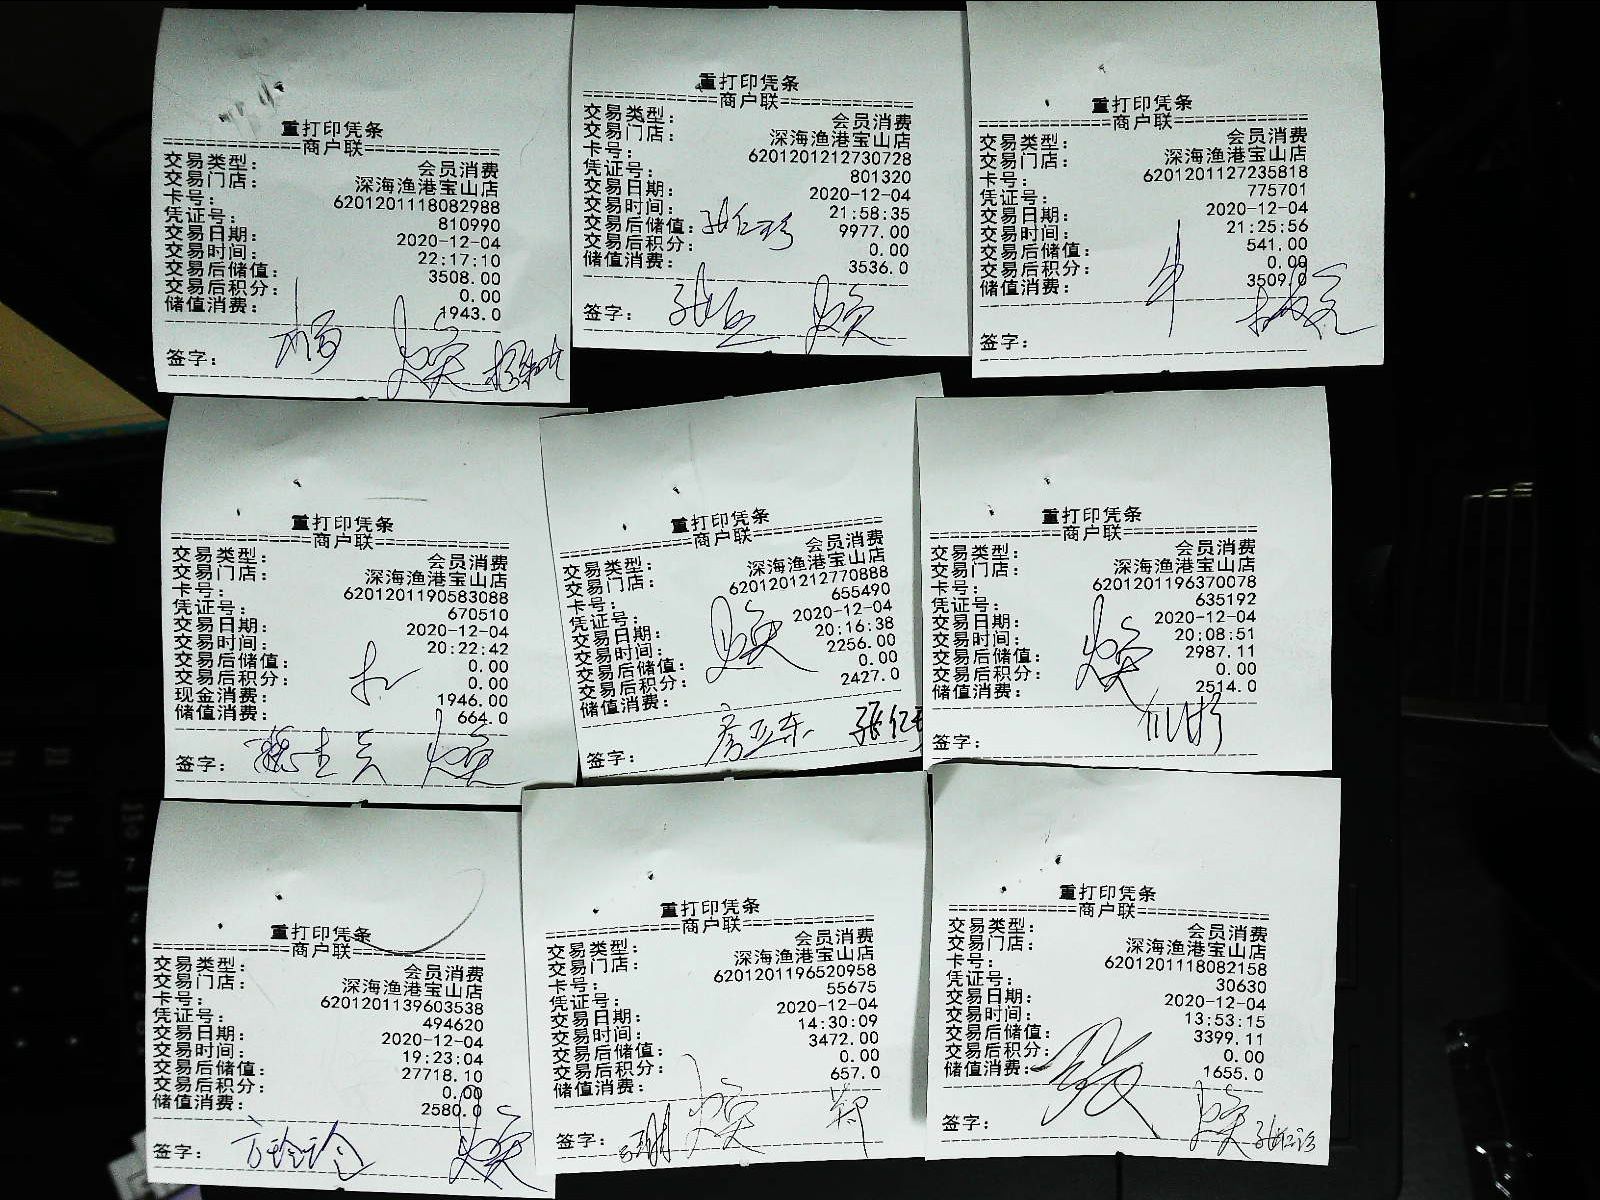 重打印凭条
================商户联================
交易类型: 会员消费
交易门店: 深海渔港宝山店
卡号: 6201201118082988
凭证号: 810990
交易日期: 2020-12-04
交易时间: 22:17:10
交易后储值: 3508.00
交易后积分: 0.00
储值消费: 1943.0
签字: 杨
重打印凭条
================商户联================
交易类型: 会员消费
交易门店: 深海渔港宝山店
卡号: 6201201212730728
凭证号: 801320
交易日期: 2020-12-04
交易时间: 21:58:35
交易后储值: 9977.00
交易后积分: 0.00
储值消费: 3536.0
签字:
重打印凭条
================商户联================
交易类型: 会员消费
交易门店: 深海渔港宝山店
卡号: 6201201127235818
凭证号: 775701
交易日期: 2020-12-04
交易时间: 21:25:56
交易后储值: 541.00
交易后积分: 0.00
储值消费: 3509.0
签字:
重打印凭条
================商户联================
交易类型: 会员消费
交易门店: 深海渔港宝山店
卡号: 6201201190583088
凭证号: 670510
交易日期: 2020-12-04
交易时间: 20:22:42
交易后储值: 0.00
交易后积分: 0.00
现金消费: 1946.00
储值消费: 664.0
签字:
重打印凭条
================商户联================
交易类型: 会员消费
交易门店: 深海渔港宝山店
卡号: 6201201212770888
凭证号: 655490
交易日期: 2020-12-04
交易时间: 20:16:38
交易后储值: 2256.00
交易后积分: 0.00
储值消费: 2427.0
签字:
重打印凭条
================商户联================
交易类型: 会员消费
交易门店: 深海渔港宝山店
卡号: 6201201196370078
凭证号: 635192
交易日期: 2020-12-04
交易时间: 20:08:51
交易后储值: 2987.11
交易后积分: 0.00
储值消费: 2514.0
签字:
重打印凭条
================商户联================
交易类型: 会员消费
交易门店: 深海渔港宝山店
卡号: 6201201139603538
凭证号: 494620
交易日期: 2020-12-04
交易时间: 19:23:04
交易后储值: 27718.10
交易后积分: 0.00
储值消费: 2580.0
签字:
重打印凭条
================商户联================
交易类型: 会员消费
交易门店: 深海渔港宝山店
卡号: 6201201196520958
凭证号: 55675
交易日期: 2020-12-04
交易时间: 14:30:09
交易后储值: 3472.00
交易后积分: 0.00
储值消费: 657.0
签字:
重打印凭条
================商户联================
交易类型: 会员消费
交易门店: 深海渔港宝山店
卡号: 6201201118082158
凭证号: 30630
交易日期: 2020-12-04
交易时间: 13:53:15
交易后储值: 3399.11
交易后积分: 0.00
储值消费: 1655.0
签字: